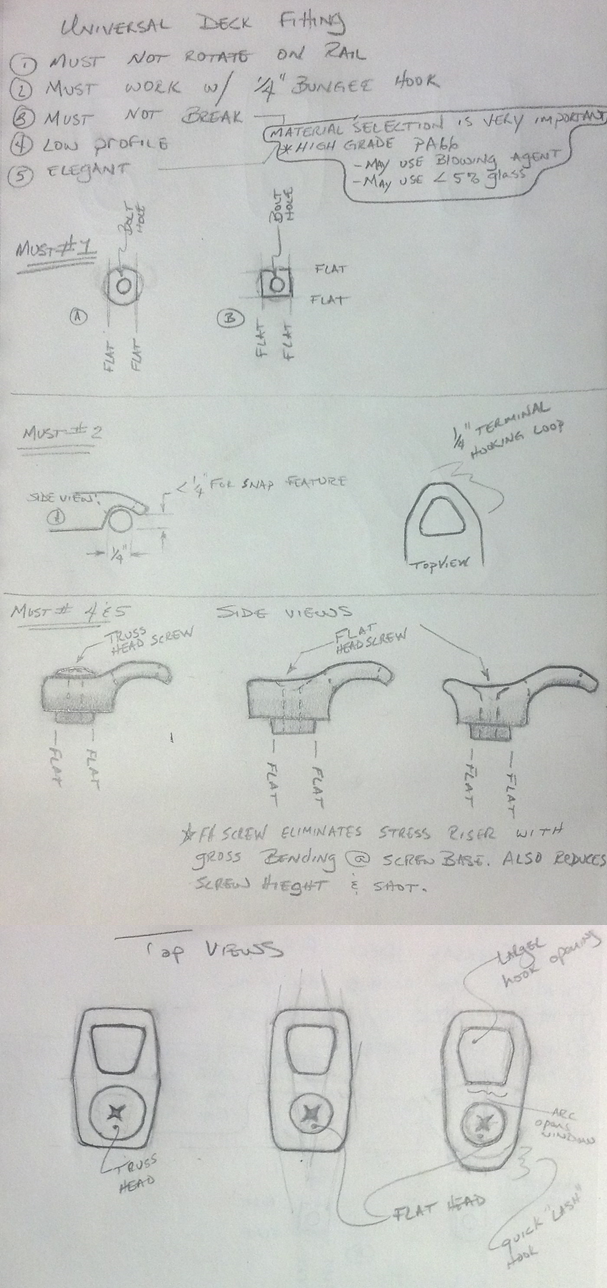 UNIVERSAL DECK FITTING
① MUST NOT ROTATE ON RAIL
② MUST WORK W/ 1/4" BUNGEE HOOK
③ MUST NOT BREAK
④ LOW PROFILE
⑤ ELEGANT
MATERIAL SELECTION IS VERY IMPORTANT
* HIGH GRADE PA66
- MAY USE BLOWING AGENT
- MAY USE < 5% glass
MUST #1
BOLT
HOLE
Ⓐ
FLAT
FLAT
BOLT
HOLE
Ⓑ
FLAT
FLAT
FLAT
FLAT
MUST #2
SIDE VIEW
< 1/4" FOR SNAP FEATURE
1/4"
1/4" TERMINAL
HOOKING LOOP
TOP VIEW
MUST # 4 & 5
SIDE VIEWS
TRUSS
HEAD SCREW
FLAT
HEAD SCREW
FLAT
FLAT
FLAT
FLAT
FLAT
FLAT
* FH SCREW ELIMINATES STRESS RISER WITH
GROSS BENDING @ SCREW BASE. ALSO REDUCES
SCREW HIEGHT & SHOT.
TOP VIEWS
LARGER
hook opening
TRUSS
HEAD
FLAT HEAD
ARC
OPENS
WINDOW
QUICK "LASH"
HOOK